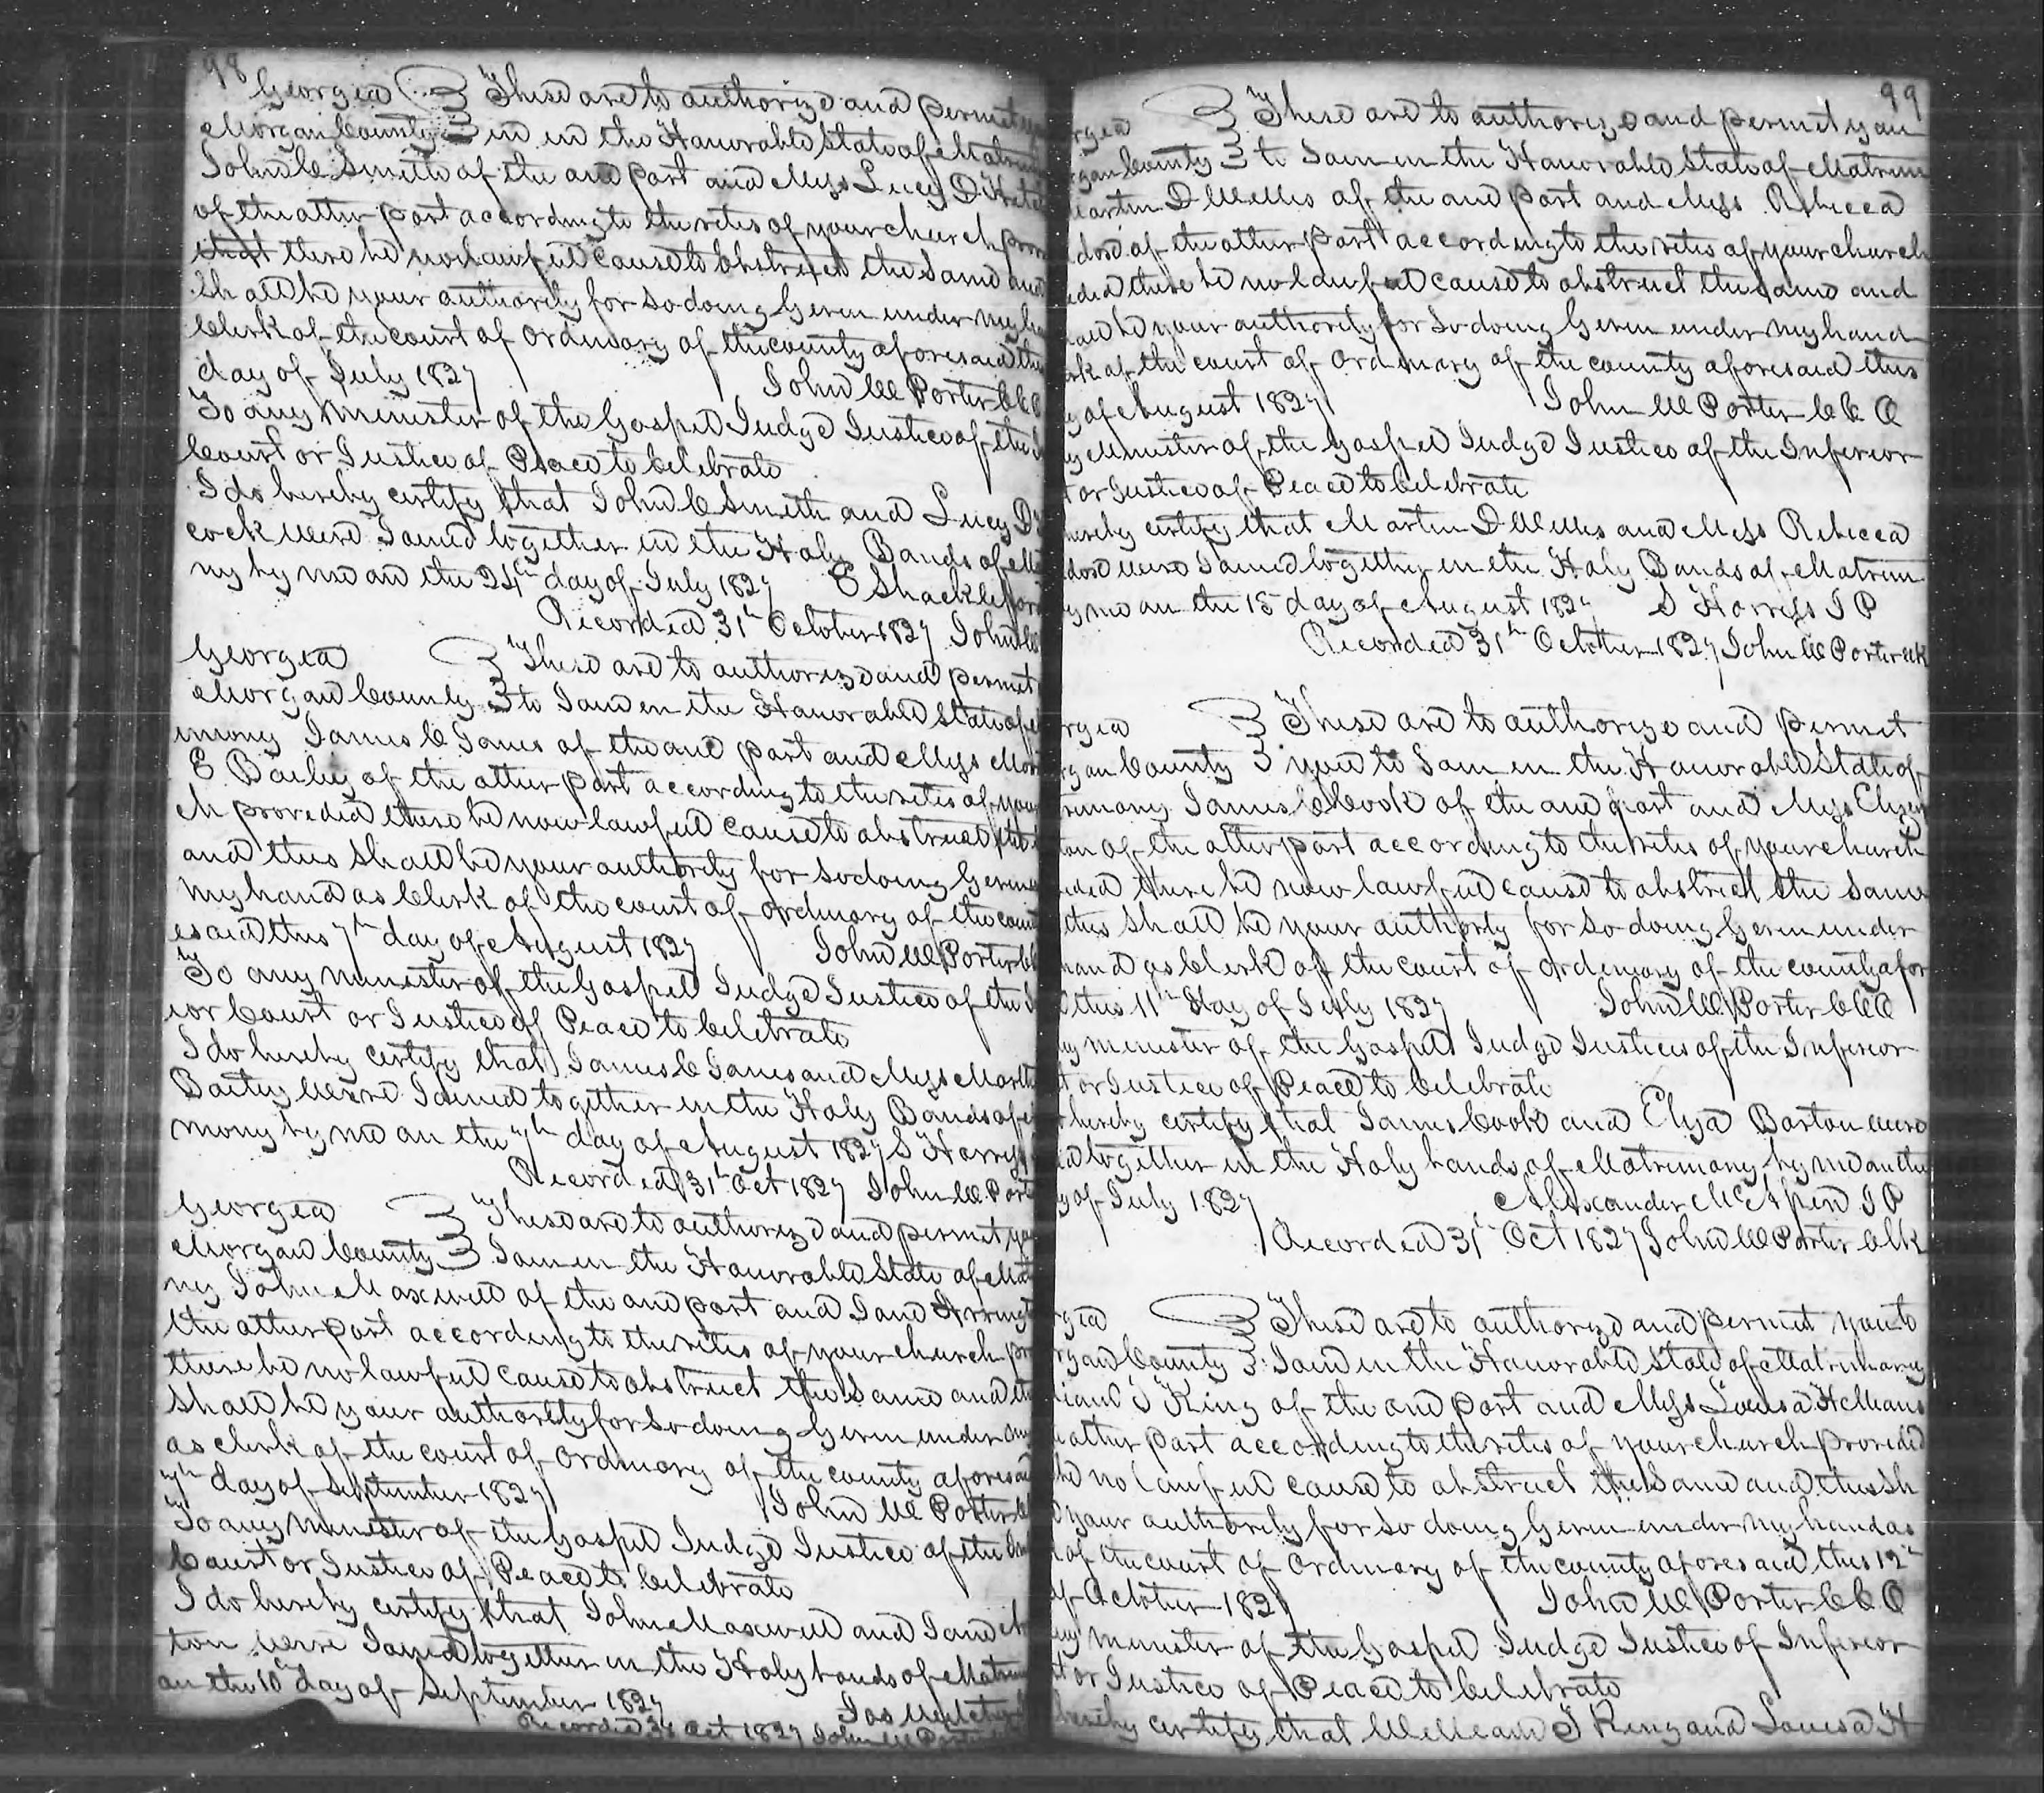 98
Georgia These are to authorize and permit
Morgan County in in the Honorable State of
John C Smith of the one part and Miss Lucy D
of the other part according to the rites of your church
that there be no lawful cause to obstruct the same and
Shall be your authority for so doing Given under my
Clerk of the court of ordinary of the county aforesaid
day of July 1827 John W Porter
To any minister of the Gospel Judge Justice of the
Court or Justice of Peace to Celebrate
I do hereby certify that John C Smith and Lucy D
cock were Joined together in the Holy Bands of
ny by me on the 24th day of July 1827 E Shackleford
Recorded 31th October 1827 John W
Georgia These are to authorize and permit
Morgan County to Join in the Honorable State of
imony James C Janes of the one part and Miss
E Bailey of the other part according to the rites of your
ch provided there be now lawful cause to obstruct the
and this shall be your authority for so doing Given
my hand as Clerk of the court of ordinary of the
esaid this 7th day of August 1827 John W Porter
To any minister of the Gospel Judge Justice of the
ior Court or Justice of Peace to Celebrate
I do hereby certify that James C Janes and Miss
Bailey Were Joined together in the Holy Bands of
mony by me on the 7th day of August 1827 S Harriss
Recorded 31th Oct 1827 John W
Georgia These are to authorize and permit
Morgan County Join in the Honorable State of
ny John Maxwell of the one part and Jane
the other part according to the rites of your church
there be no lawful cause to obstruct the same and
Shall be your authority for so doing Given under
as clerk of the court of ordinary of the county
7th day of September 1827 John W Porter
To any minister of the Gospel Judge Justice of the
Court or Justice of Peace to Celebrate
I do hereby certify that John Maxwell and Jane
ton were Joined together in the Holy bands of
on the 10th day of September 1827 Jas
Recorded 31 Oct 1827 John W
99
rgia These are to authorize and permit you
rgan County to Join in the Honorable State of Matrim
artin D Willis of the one part and Miss Rebecca
dox of the other part according to the rites of your church
ided there be no lawful cause to obstruct the same and
all be your authority for so doing Given under my hand
rk of the court of ordinary of the county aforesaid this
y of August 1827 John W Porter C C O
y Minister of the Gospel Judge Justice of the Inferior
t or Justice of Peace to Celebrate
hereby certify that Martin D Willis and Miss Rebecca
dox were Joined together in the Holy Bands of Matrim
y me on the 15 day of August 1827 S Harriss J P
Recorded 31th October 1827 John W Porter clk
rgia These are to authorize and permit
rgan County you to Join in the Honorable State of
rimony James Cook of the one part and Miss
ton of the other part according to the rites of your church
ided there be now lawful cause to obstruct the same
this shall be your authority for so doing Given under
hand as Clerk of the court of ordinary of the county afor
d this 11th day of July 1827 John W Porter C C O
ny minister of the Gospel Judge Justices of the Inferior
t or Justice of Peace to Celebrate
hereby certify that James Cook and Eliza Barton were
ed together in the Holy bands of Matrimony by me on the
y of July 1827 Alexander McAlpin J P
Recorded 31th Oct 1827 John W Porter Clk
rgia These are to authorize and permit you to
rgan County Join in the Honorable State of Matrimony
liam J King of the one part and Miss Louisa H Means
other part according to the rites of your church provided
be no lawful cause to obstruct the same and this sh
your authority for so doing Given under my hand as
of the court of ordinary of the county aforesaid this 12th
of October 1827 John W Porter C C O
ny minister of the Gospel Judge Justice of Inferior
t or Justice of Peace to Celebrate
hereby certify that William J King and Louisa H